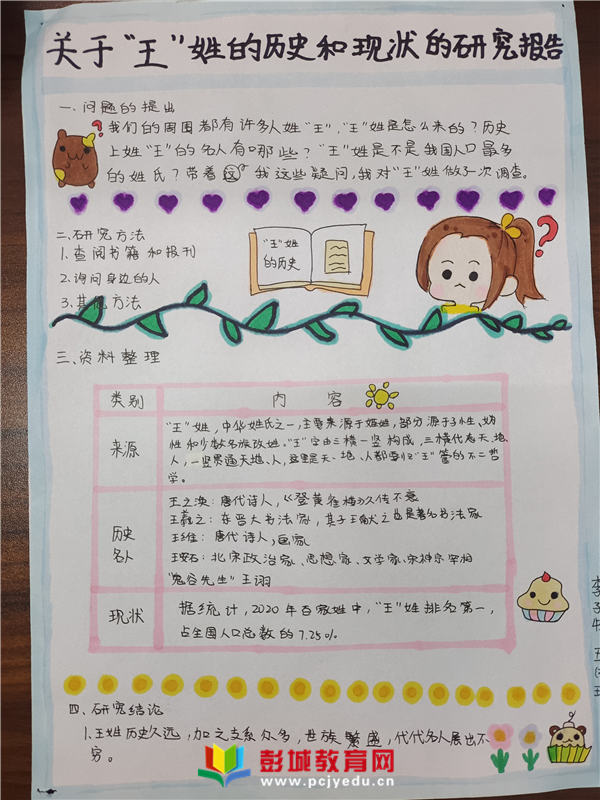 关于“王”姓的历史和现状的研究报告
一.问题的提出
我们的周围都有许多人姓“王”,“王”姓是怎么来的？历史
上姓“王”的名人有哪些？“王”姓是不是我国人口最多
的姓氏？带着这我这些疑问,我对“王”姓做了一次调查。
二.研究方法
1.查阅书籍和报刊
2.询问身边的人
3.其他方法
“王”姓
的历史
?
三.资料整理
类别 内 容
来源
“王”姓,中华姓氏之一,主要来源于姬姓,部分源于子姓、妫
姓和少数名族改姓.“王”字由三横一竖构成,三横代表天、地、
人,一竖贯通天地、人,这里是天、地、人都要归“王”管的不二哲
学。
历史
名人
王之涣:唐代诗人,《登黄雀楼》久传不衰
王羲之:东晋大书法家,其子王献之也是著名书法家
王维:唐代诗人,画家
王安石:北宋政治家、思想家、文学家、宋神宗宰相
“鬼谷先生”王诩
现状
据统计,2020年百家姓中,“王”姓排名第一,
占全国人口总数的7.25%.
四.研究结论
1.王姓历史久远,加之支系众多,世族繁盛,代代名人展出不
穷。
彭城教育网
www.pcjyedu.cn